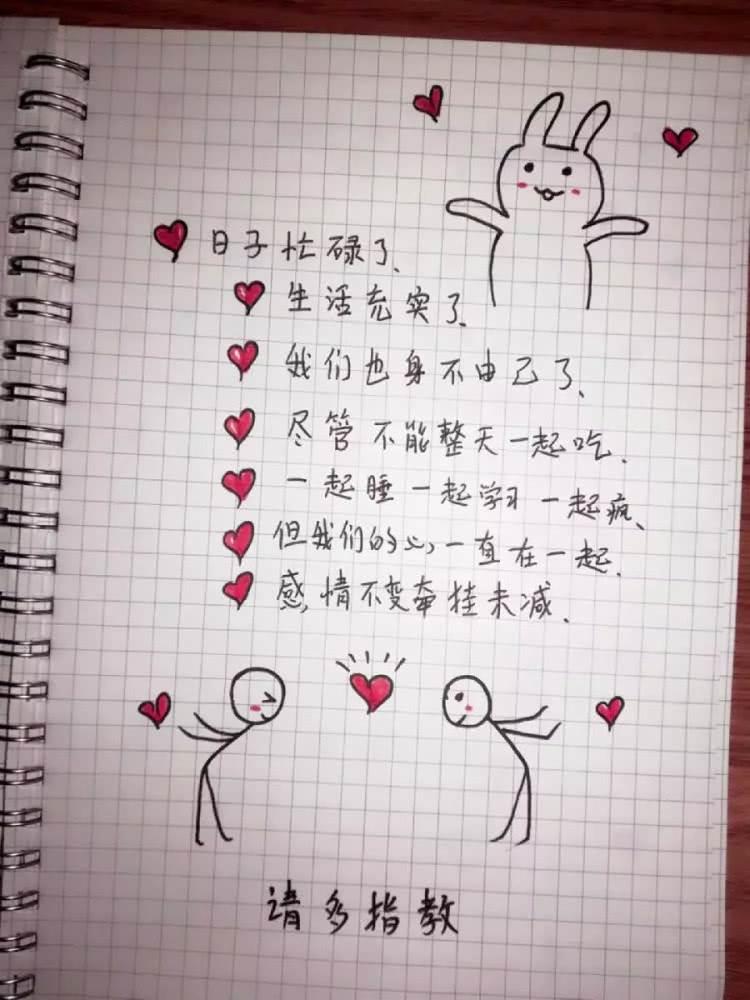 日子忙碌了、
生活充实了、
我们也身不由己了、
尽管不能整天一起吃、
一起睡一起学习一起疯、
但我们的心,一直在一起、
感情不变牵挂未减、
请多指教